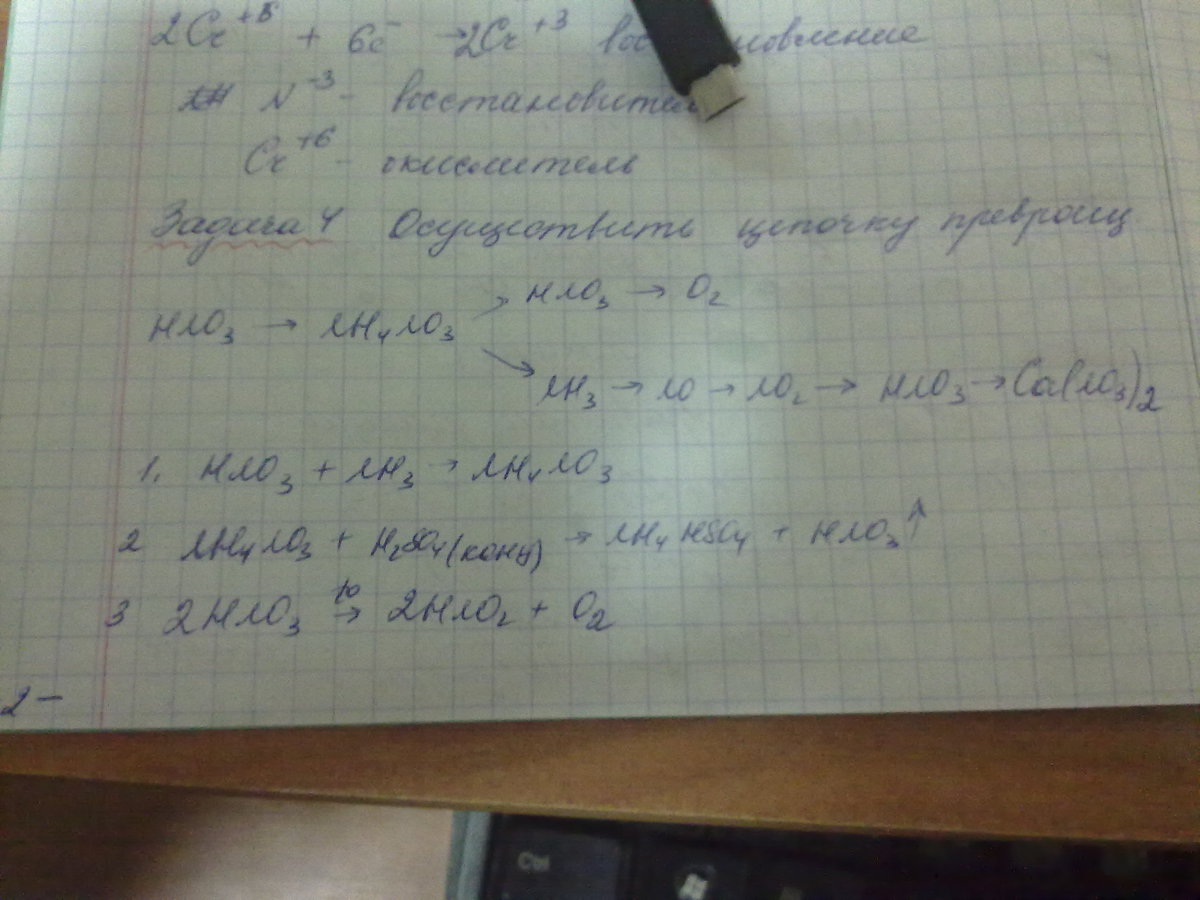 2Cr⁺⁶ + 6e⁻ → 2Cr⁺³ вос новление
N⁻³ - восстановитель
Cr⁺⁶ - окислитель
Задача 4 Осуществить цепочку превращ
HNO₃ → NH₄NO₃ → HNO₃ → O₂
→ NH₃ → NO → NO₂ → HNO₃ → Ca(NO₃)₂
1. HNO₃ + NH₃ → NH₄NO₃
2 NH₄NO₃ + H₂SO₄(конц) → NH₄HSO₄ + HNO₃↑
3 2HNO₃ t° → 2HNO₂ + O₂
2 —
Ctrl